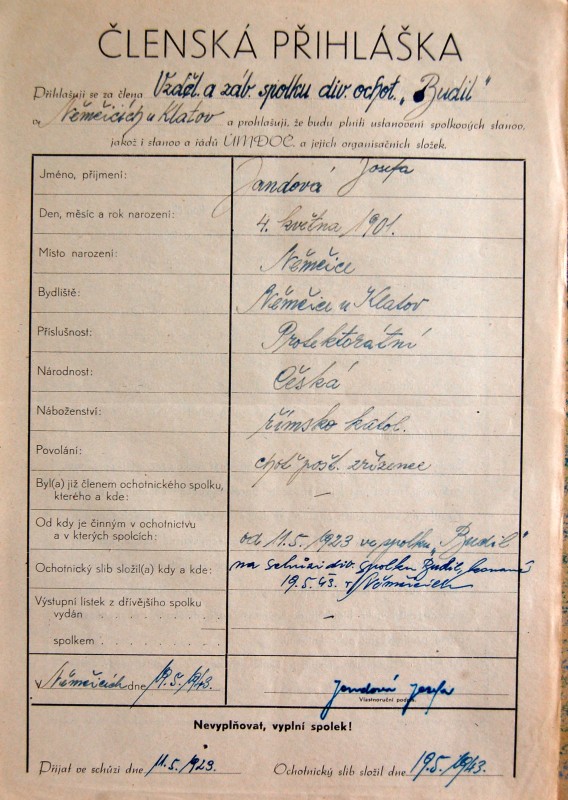 ČLENSKÁ PŘIHLÁŠKA
Přihlašuji se za člena Vzděl. a záb. spolku div. ochot. „Budil"
v Němčicích u Klatov a prohlašuji, že budu plniti ustanovení spolkových stanov,
jakož i stanov a řádů ÚMDOČ. a jejich organisačních složek.
Jméno, příjmení: Jandová Josefa
Den, měsíc a rok narození: 4. května 1901.
Místo narození: Němčice
Bydliště: Němčice u Klatov
Příslušnost: Protektorátní
Národnost: Česká
Náboženství: římsko katol.
Povolání: choť pošt. zřízence
Byl(a) již členem ochotnického spolku,
kterého a kde: –
Od kdy je činným v ochotnictvu
a v kterých spolcích: od 11.5. 1923 ve spolku „Budil"
Ochotnický slib složil(a) kdy a kde: na schůzi div. spolku Budil, konané
19.5.43. v Němčicích
Výstupní lístek z dřívějšího spolku
vydán . . . . . . . –
spolkem . . . . . . .
V Němčicích dne 19.5. 1943. Jandová Josefa
Vlastnoruční podpis.
Nevyplňovat, vyplní spolek!
Přijat ve schůzi dne 11.5. 1923. Ochotnický slib složil dne 19.5. 1943.